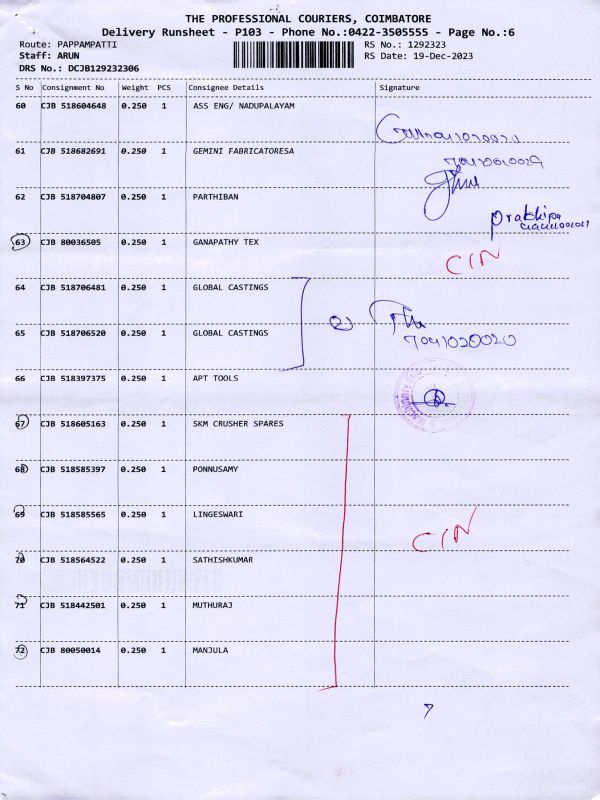 THE PROFESSIONAL COURIERS, COIMBATORE
Delivery Runsheet - P103 - Phone No.:0422-3505555 - Page No.:6
Route: PAPPAMPATTI RS No.: 1292323
Staff: ARUN RS Date: 19-Dec-2023
DRS No.: DCJB129232306
S No Consignment No Weight PCS Consignee Details Signature
60 CJB 518604648 0.250 1 ASS ENG/ NADUPALAYAM
61 CJB 518682691 0.250 1 GEMINI FABRICATORESA
62 CJB 518704807 0.250 1 PARTHIBAN
63 CJB 80036505 0.250 1 GANAPATHY TEX CIN
64 CJB 518706481 0.250 1 GLOBAL CASTINGS
65 CJB 518706520 0.250 1 GLOBAL CASTINGS
66 CJB 518397375 0.250 1 APT TOOLS
67 CJB 518605163 0.250 1 SKM CRUSHER SPARES
68 CJB 518585397 0.250 1 PONNUSAMY
69 CJB 518585565 0.250 1 LINGESWARI CIN
70 CJB 518564522 0.250 1 SATHISHKUMAR
71 CJB 518442501 0.250 1 MUTHURAJ
72 CJB 80050014 0.250 1 MANJULA